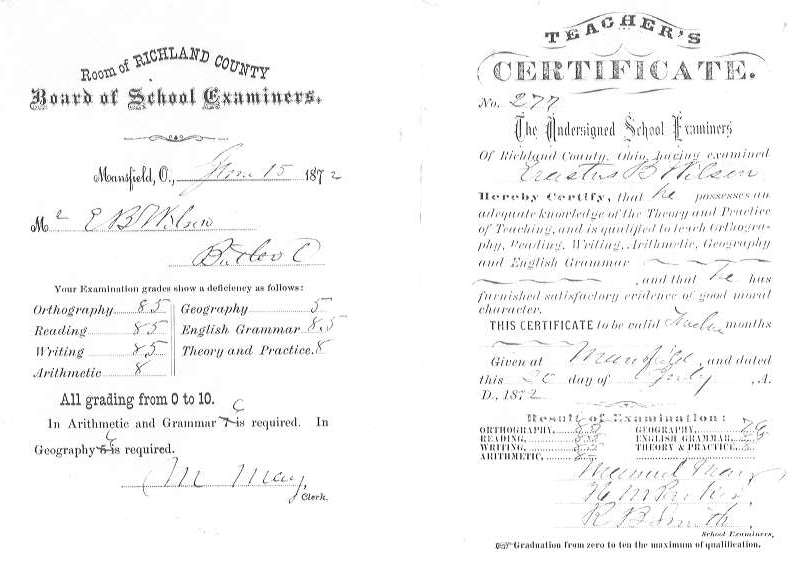 Room of RICHLAND COUNTY
Board of School Examiners.
Mansfield, O., 15 1872
Mr E B Wilson
Butler O
Your Examination grades show a deficiency as follows:
Orthography 8.5 Geography 5
Reading 8.5 English Grammar 8.5
Writing 8.5 Theory and Practice. 8
Arithmetic 8
All grading from 0 to 10.
In Arithmetic and Grammar 7 is required. In
Geography is required.
M May,
Clerk.
TEACHER'S
CERTIFICATE.
No. 277
The Undersigned School Examiners
Of Richland County, Ohio, having examined
Erastus B Wilson
Hereby Certify, that he possesses an
adequate knowledge of the Theory and Practice
of Teaching, and is qualified to teach Orthogra-
phy, Reading, Writing, Arithmetic, Geography
and English Grammar
, and that he has
furnished satisfactory evidence of good moral
character.
THIS CERTIFICATE to be valid Twelve months
Given at Mansfield, and dated
this 20 day of July, A.
D., 1872
Result of Examination:
ORTHOGRAPHY, GEOGRAPHY,
READING, ENGLISH GRAMMAR,
WRITING, THEORY & PRACTICE,
ARITHMETIC,
Manuel May
R B Smith
School Examiners,
Graduation from zero to ten the maximum of qualification.